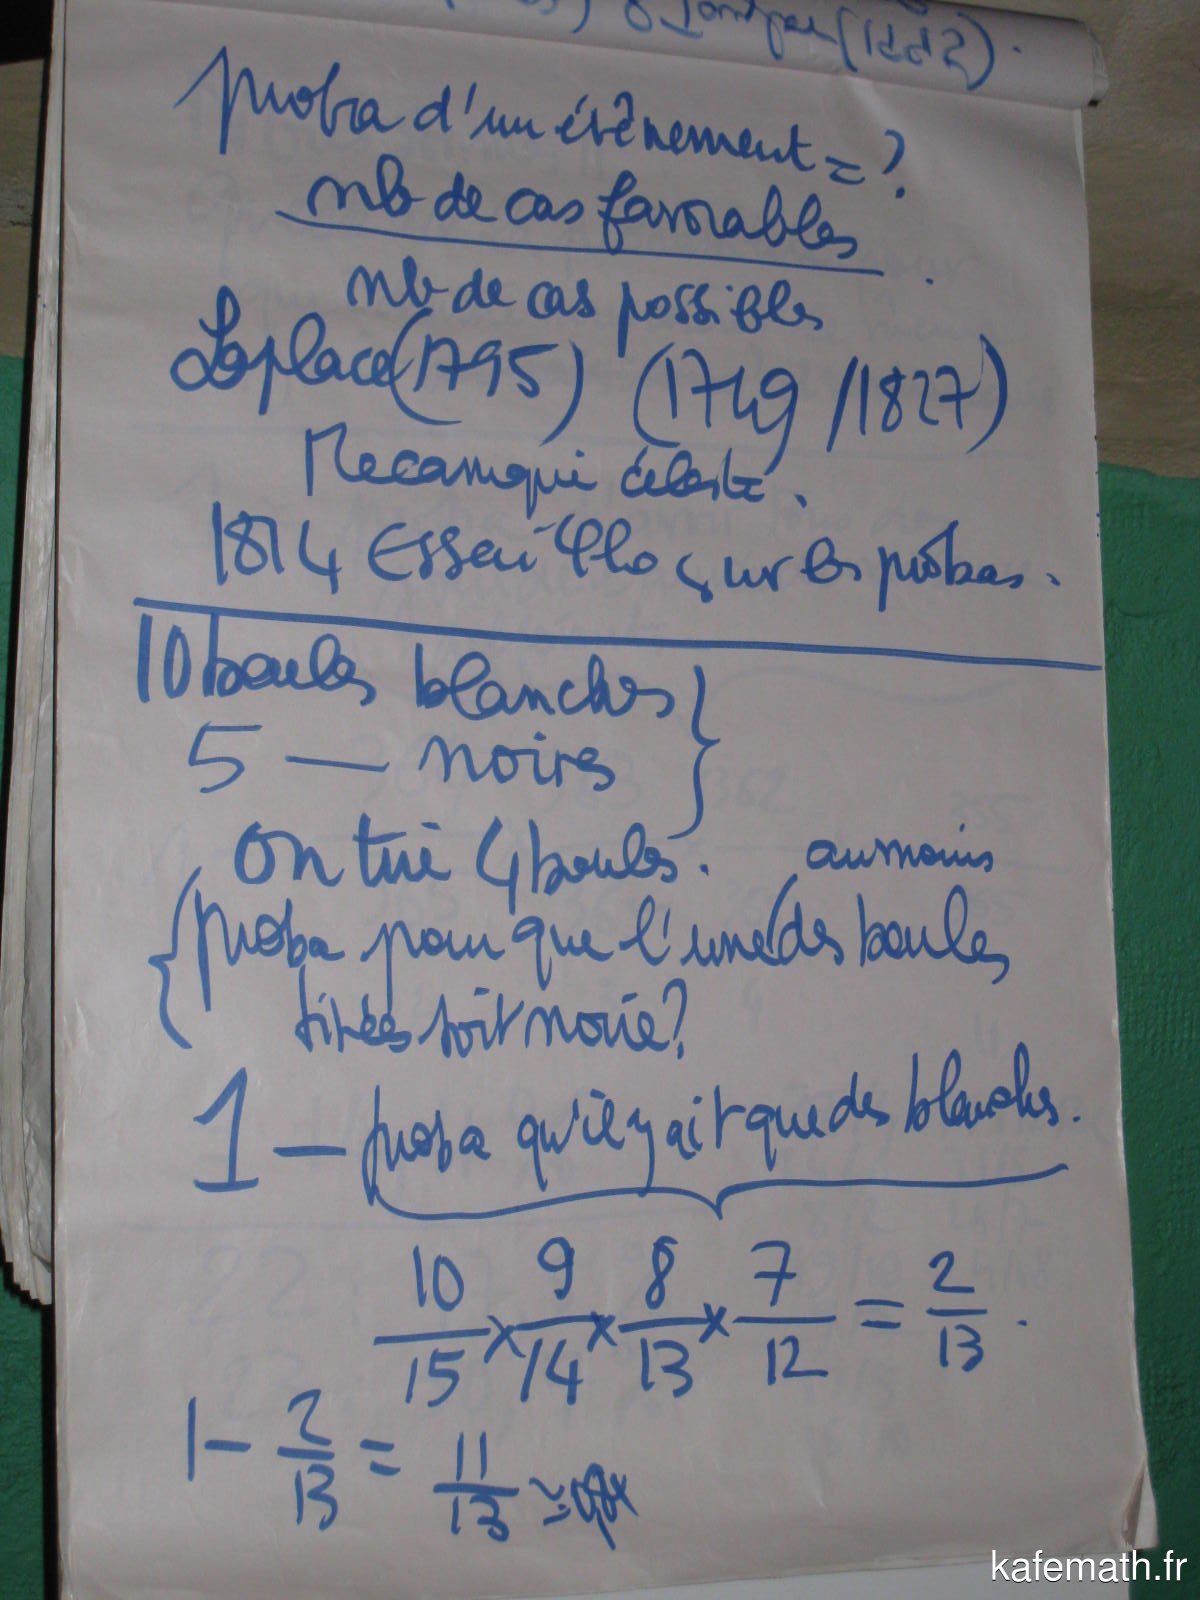 proba d'un évênement = ?
nb de cas favorables
nb de cas possibles
Laplace (1795) (1749 / 1827)
Mecanique céleste.
1814 Essai Philo sur les probas.
10 boules blanches
5 — noires
On tire 4 boules.
au moins
proba pour que l'une des boules
tirées soit noire?
1 — proba qu'il y ait que des blanches.
10/15 × 9/14 × 8/13 × 7/12 = 2/13.
1 - 2/13 = 11/13 ≃
kafemath.fr